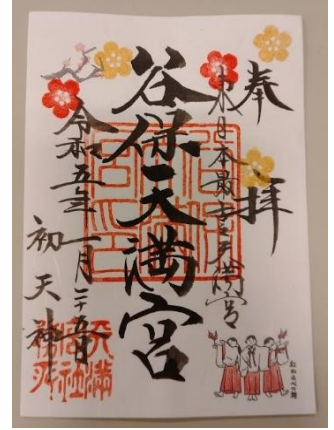 奉拝
東日本最古之天満宮
谷保天満宮
令和五年一月二十五日
初天神